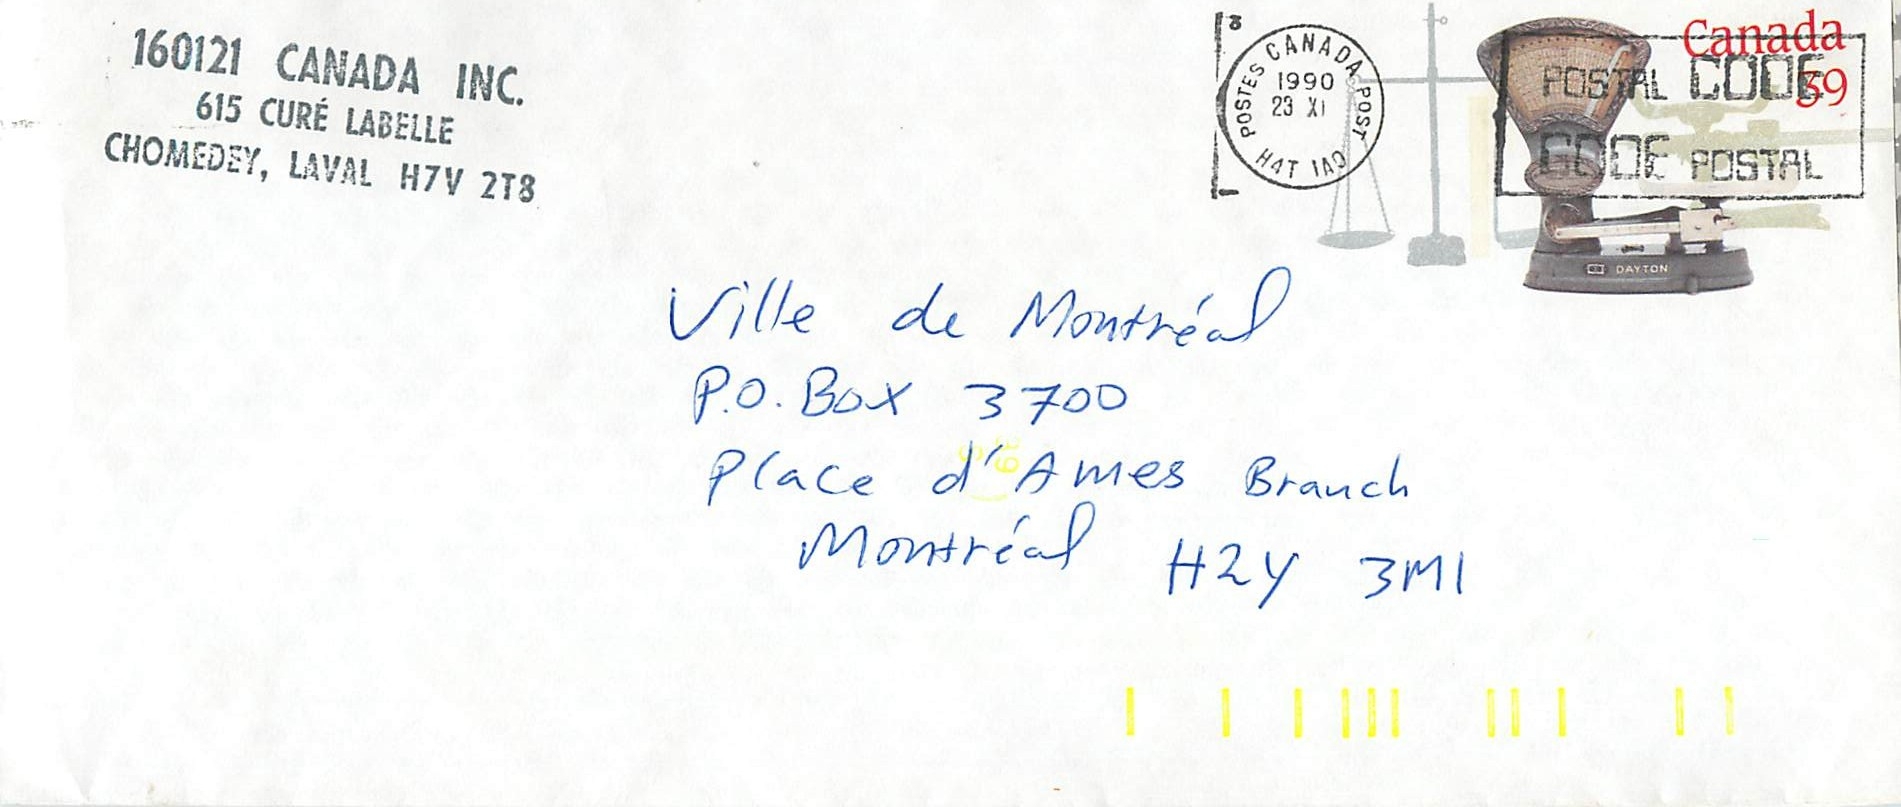 160121 CANADA INC.
615 CURÉ LABELLE
CHOMEDEY, LAVAL H7V 2T8
3
POSTES CANADA POST
1990
23 XI
H4T 1A0
Canada
39
POSTAL CODE
CODE POSTAL
DAYTON
Ville de Montréal
P.O. Box 3700
Place d'Ames Branch
Montréal H2Y 3M1